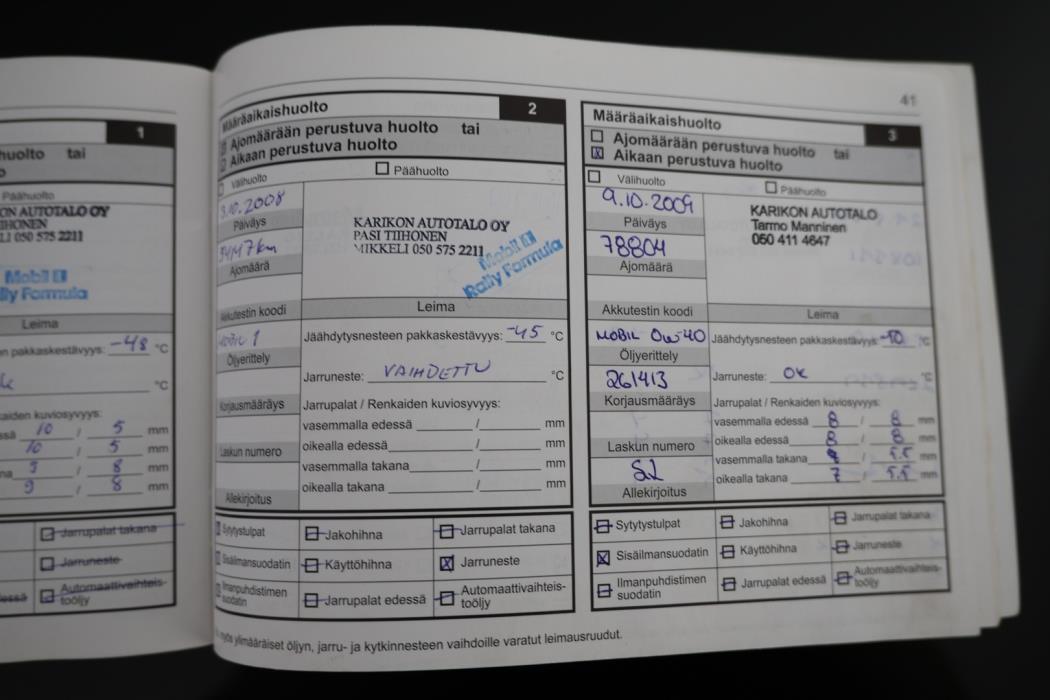 41
1
huolto tai
Päähuolto
KON AUTOTALO OY
IHONEN
LI 050 575 2211
Mobil 1
lly Formula
Leima
n pakkaskestävyys: -48 °C
°C
aiden kuviosyvyys:
ssä 10 / 5 mm
10 / 5 mm
na 9 / 8 mm
9 / 8 mm
Jarrupalat takana
Jarruneste
edessä Automaattivaihteis-
toöljy
Määräaikaishuolto 2
Ajomäärään perustuva huolto tai
Aikaan perustuva huolto
Välihuolto Päähuolto
.10.2008
Päiväys
KARIKON AUTOTALO OY
PASI TIIHONEN
MIKKELI 050 575 2211
Mobil 1
Rally Formula
km
Ajomäärä
Akkutestin koodi Leima
MOBIL 1
Öljyerittely
Jäähdytysnesteen pakkaskestävyys: -45 °C
Jarruneste: VAIHDETTU °C
Korjausmääräys
Jarrupalat / Renkaiden kuviosyvyys:
vasemmalla edessä / mm
oikealla edessä / mm
Laskun numero
vasemmalla takana / mm
oikealla takana / mm
Allekirjoitus
Sytytystulpat Jakohihna Jarrupalat takana
Sisäilmansuodatin Käyttöhihna Jarruneste
Ilmanpuhdistimen
suodatin
Jarrupalat edessä Automaattivaihteis-
toöljy
Määräaikaishuolto 3
Ajomäärään perustuva huolto tai
Aikaan perustuva huolto
Välihuolto Päähuolto
9.10.2009
Päiväys
KARIKON AUTOTALO
Tarmo Manninen
060 411 4647
78804
Ajomäärä
Akkutestin koodi Leima
MOBIL 0W-40
Öljyerittely
Jäähdytysnesteen pakkaskestävyys: °C
261413
Jarruneste: OK °C
Korjausmääräys
Jarrupalat / Renkaiden kuviosyvyys:
vasemmalla edessä 8 / 8 mm
oikealla edessä 8 / 8 mm
Laskun numero
vasemmalla takana / 5.5 mm
oikealla takana 7 / 5.5 mm
Allekirjoitus
Sytytystulpat Jakohihna Jarrupalat takana
Sisäilmansuodatin Käyttöhihna Jarruneste
Ilmanpuhdistimen
suodatin
Jarrupalat edessä Automaattivaihteis-
toöljy
myös ylimääräiset öljyn, jarru- ja kytkinnesteen vaihdoille varatut leimausruudut.